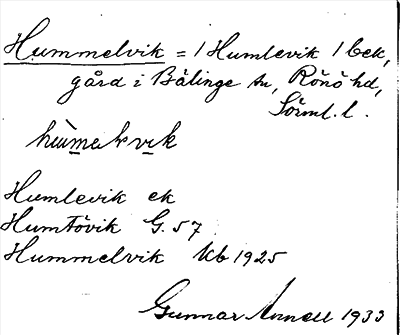 Hummelvik = / Humlevik / bek,
gård i Bälinge sn, Rönö hd,
Sörml. l.
Humlevik ek
Humlövik G. 57
Hummelvik kb 1925
Gunnar Annell 1933